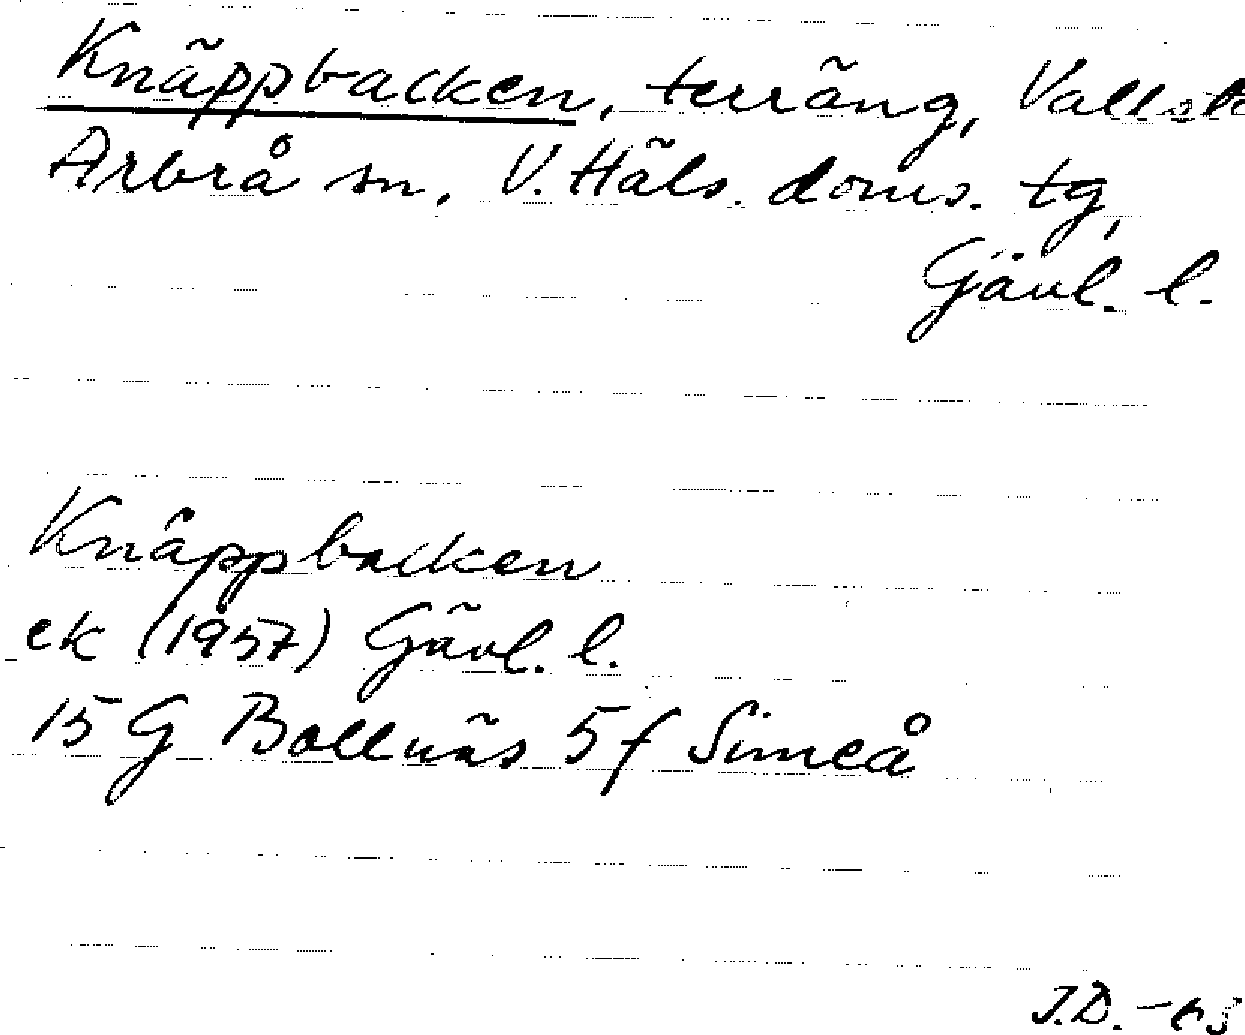 Knäppbacken, terräng, Vallsta
Arbrå sn, V. Häls. doms. tg,
Gävl. l.
Knäppbacken
ek (1957) Gävl. l.
15 G Bollnäs 5 f Simeå
J.D. -65